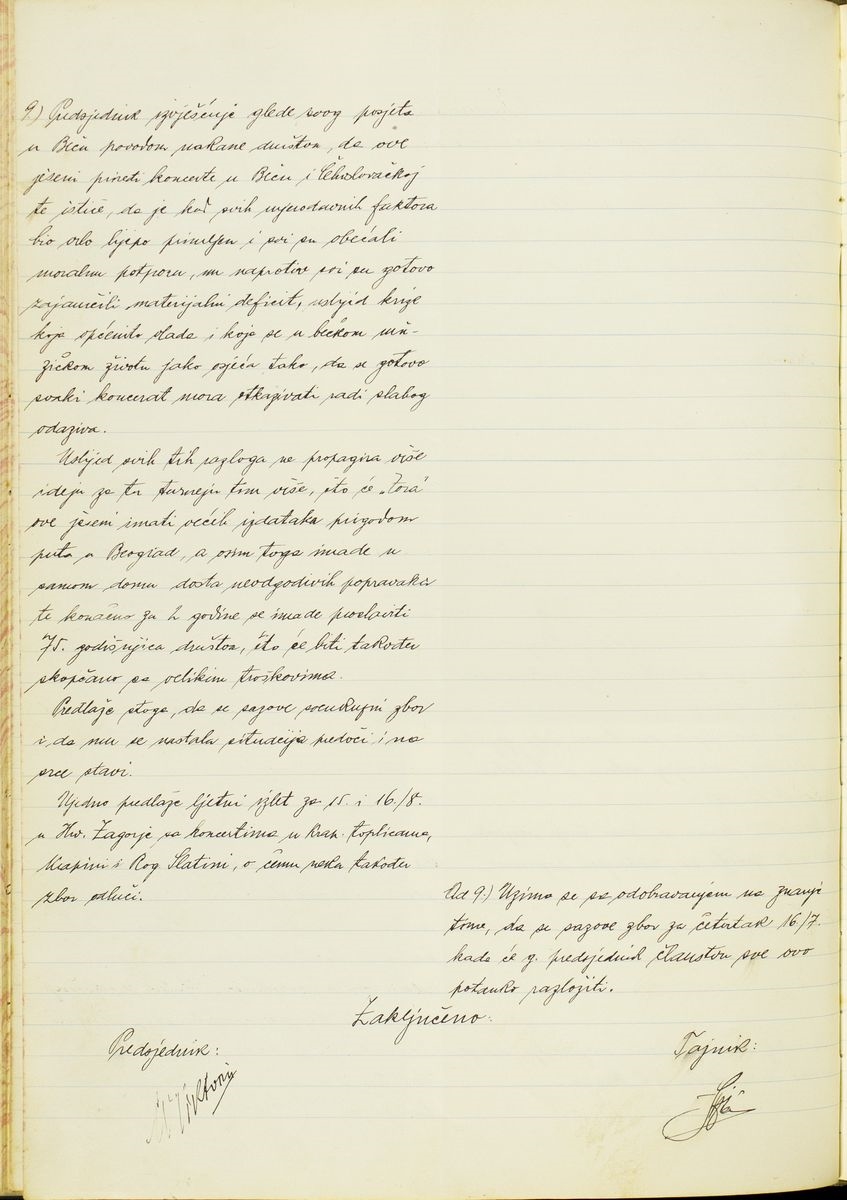 9.) Predsjednik izvješćuje glede svog posjeta
u Beču povodom nakane društva, da ove
jeseni priredi koncerte u Beču i Čehslovačkoj
te ističe, da je kod svih mjerodavnih faktora
bio vrlo lijepo primljen i svi su obećali
moralnu potporu, no naprotiv svi su gotovo
zajamčili materijalni deficit, uslijed krize
koja općenito vlada i koja se u bečkom mu-
zičkom životu jako osjeća tako, da se gotovo
svaki koncerat mora otkazivati radi slabog
odaziva.
Uslijed svih tih razloga ne propagira više
ideju za tu turneju tim više, što će „Zora"
ove jeseni imati većih izdataka prigodom
puta u Beograd, a osim toga imade u
samom domu dosta neodgodivih popravaka
te konačno za 2 godine se imade proslaviti
75. godišnjica društva, što će biti također
skopčano sa velikim troškovima.
Predlaže stoga, da se sazove sveukupni zbor
i da mu se nastala situacija predoči i na
srce stavi.
Ujedno predlaže ljetni izlet za 15. i 16./8.
u Hrv. Zagorje sa koncertima u Krap. toplicama,
Krapini i Rog Slatini, o čemu neka također
zbor odluči.
Ad 9.) Uzima se sa odobravanjem na znanje
time, da se sazove zbor za četvrtak 16./7.
kada će g. predsjednik članstvu sve ovo
potanko razložiti.
Zaključeno.
Predsjednik: Tajnik: